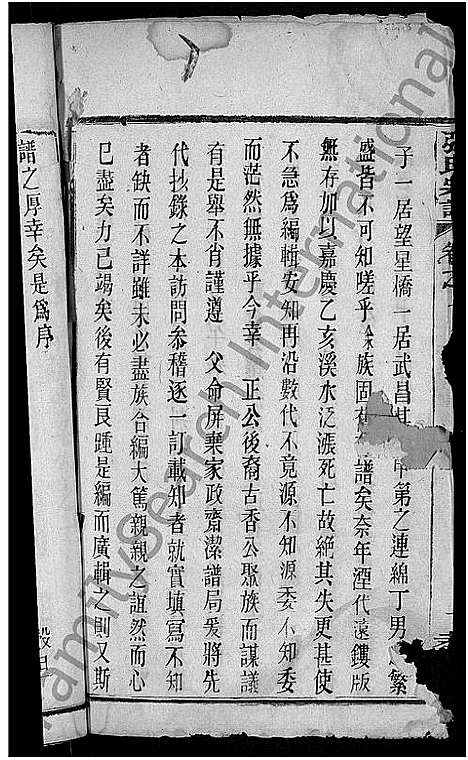 張氏宗譜 卷之
子一居望星橋一居武昌其甲第之連綿丁男之繁
盛皆不可知嗟乎余族固有譜矣奈年湮代遠鏤版
無存加以嘉慶乙亥溪水泛漲死亡故絕其失更甚使
不急為編輯安知再沿數代不竟源不知源委不知委
而茫然無據乎今幸 正公後裔古香公聚族而謀議
有是舉不肖謹遵 父命屏棄家政齋潔譜局爰將先
代抄錄之本訪問參稽逐一訂載知者就實填寫不知
者缺而不詳雖未必盡族合編大篤親親之誼然而心
已盡矣力已竭矣後有賢良踵是編而廣輯之則又斯
譜之厚幸矣是為序
FamilySearch International